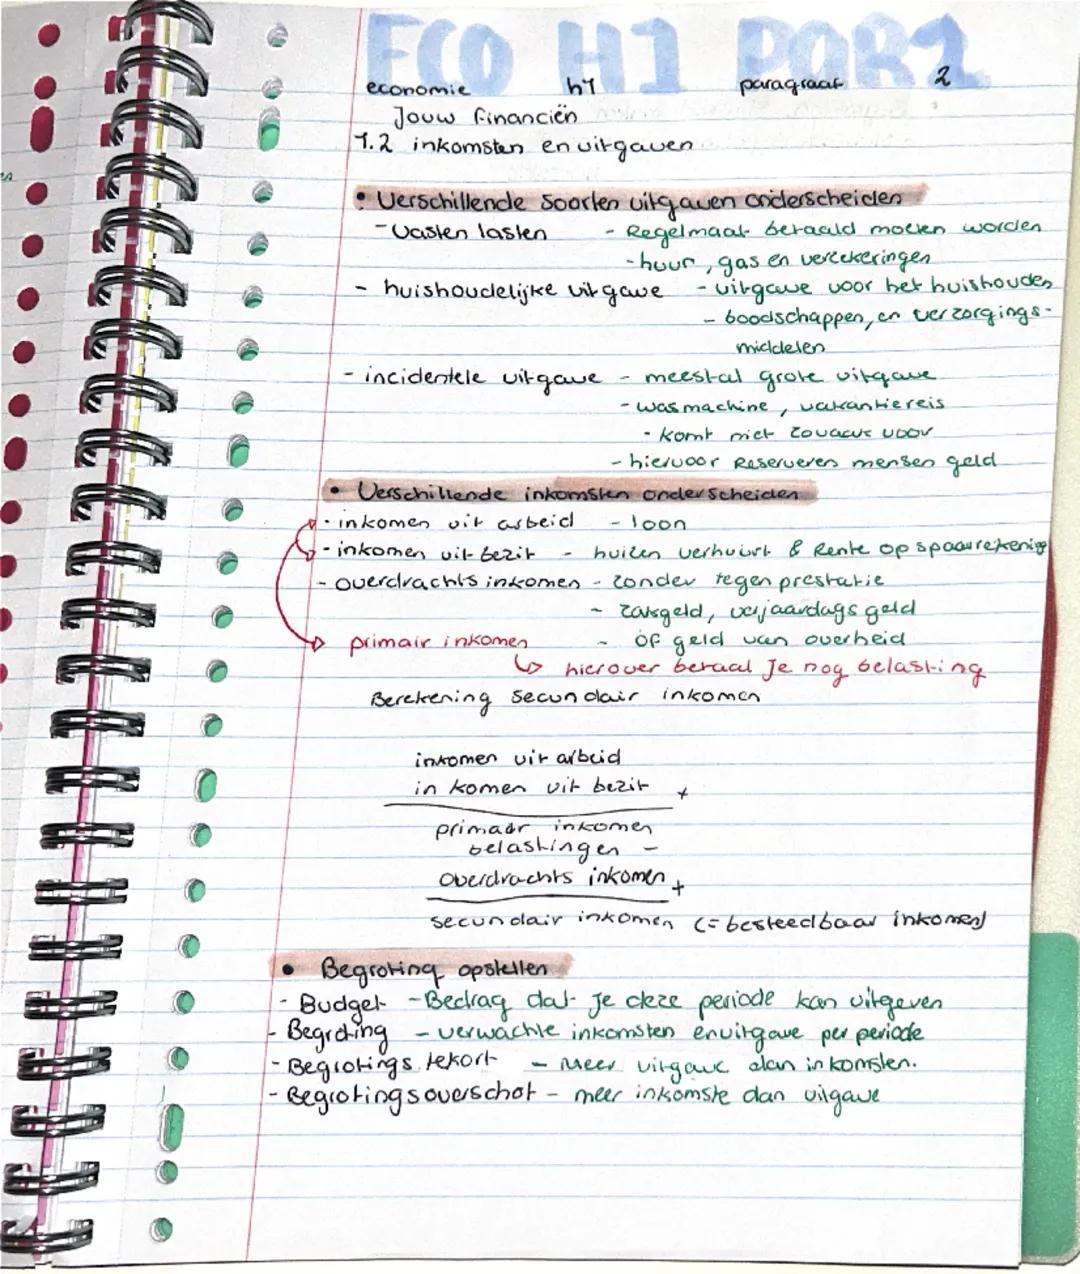 ECO H1 PAR1
economie h1 paragraaf 2
Jouw financiën
1.2 inkomsten en uitgaven
• Verschillende soorten uitgaven onderscheiden
- Vasten lasten - Regelmaat betaald moeten worden
- huur, gas en verzekeringen
- huishoudelijke uitgave - uitgave voor het huishouden
- boodschappen, en verzorgings-
middelen
- incidentele uitgave - meestal grote uitgave
- wasmachine, vakantiereis
- komt niet zovaak voor
- hiervoor Reserveren mensen geld
• Verschillende inkomsten onderscheiden
- inkomen uit arbeid - loon
- inkomen uit bezit - huizen verhuurt & Rente op spaarrekening
- overdrachts inkomen - zonder tegenprestatie
- zakgeld, verjaardags geld
primair inkomen - óf geld van overheid
↳ hierover betaal je nog belasting
Berekening secundair inkomen
inkomen uit arbeid
inkomen uit bezit +
primair inkomen
belastingen -
Overdrachts inkomen +
secundair inkomen (= besteedbaar inkomen)
• Begroting opstellen
- Budget - Bedrag dat je deze periode kan uitgeven
- Begroting - verwachte inkomsten en uitgave per periode
- Begrotings tekort - Meer uitgave dan inkomsten.
- Begrotingsoverschot - meer inkomste dan uitgave